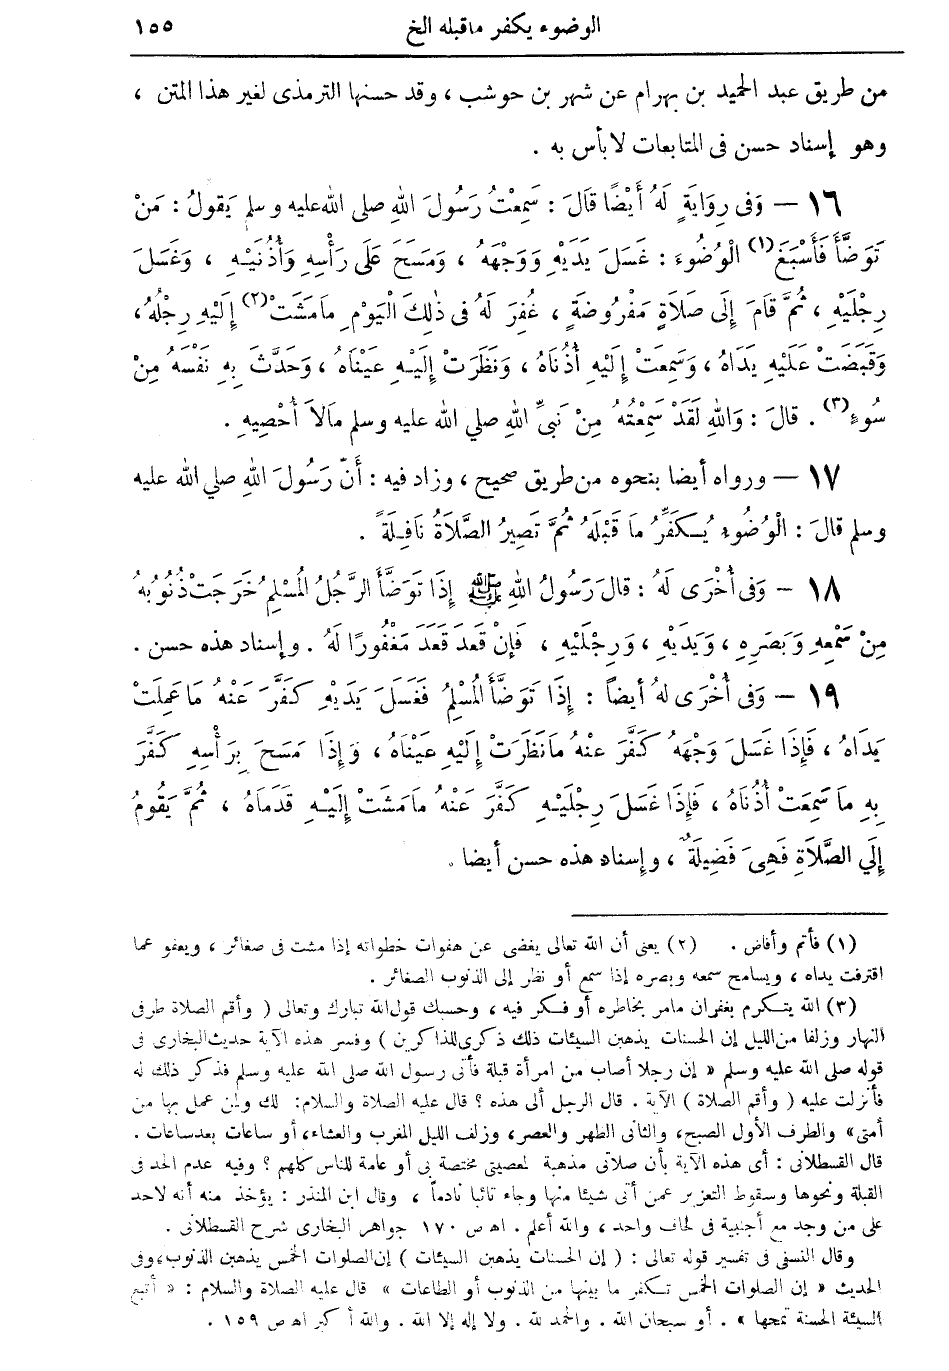 الوضوء يكفر ماقبله الخ ١٥٥
من طريق عبد الحميد بن بهرام عن شهر بن حوشب ، وقد حسنها الترمذى لغير هذا المتن ،
وهو إسناد حسن فى المتابعات لا بأس به .
١٦ — وَفى رِوَايَةٍ لَهُ أَيْضًا قَالَ : سَمِعْتُ رَسُولَ اللهِ صلى الله عليه وسلم يَقولُ : مَنْ
تَوَضَّأَ فَأَسْبَغَ (١) الْوُضُوءَ : غَسَلَ يَدَيْهِ وَوَجْهَهُ ، وَمَسَحَ عَلَى رَأْسِهِ وَأُذُنَيْهِ ، وَغَسَلَ
رِجْلَيْهِ ، ثُمَّ قَامَ إِلَى صَلَاةٍ مَفْرُوضَةٍ ، غُفِرَ لَهُ فى ذٰلِكَ الْيَوْمِ مَا مَشَتْ (٢) إِلَيْهِ رِجْلُهُ ،
وَقَبَضَتْ عَلَيْهِ يَدَاهُ ، وَسَمِعَتْ إِلَيْهِ أُذُنَاهُ ، وَنَظَرَتْ إِلَيْهِ عَيْنَاهُ ، وَحَدَّثَ بِهِ نَفْسَهُ مِنْ
سُوءٍ (٣) . قالَ : وَاللهِ لَقَدْ سَمِعْتُهُ مِنْ نَبىِّ اللهِ صلي الله عليه وسلم مَالاَ أُحْصِيهِ .
١٧ — ورواه أيضا بنحوه من طريق صحيح ، وزاد فيه : أَنَّ رَسُولَ اللهِ صلي الله عليه
وسلم قالَ : الْوُضُوءِ يُكَفِّرُ مَا قَبْلَهُ ثُمَّ تَصِيرُ الصَّلَاةُ نَافِلَةً .
١٨ — وَفى أُخْرَى لَهُ : قالَ رَسُولُ اللهِ ﷺ إِذَا تَوَضَّأَ الرَّجُلُ الْمُسْلِمُ خَرَجَتْ ذُنُوبُهُ
مِنْ سَمْعِهِ وَبَصَرِهِ ، وَيَدَيْهِ ، وَرِجْلَيْهِ ، فَإِنْ قَعَدَ قَعَدَ مَغْفُورًا لَهُ . وإسناد هذه حسن .
١٩ — وَفى أُخْرَى لهُ أيضاً : إِذَا تَوَضَّأَ الْمُسْلِمُ فَغَسَلَ يَدَيْهِ كَفَّرَ عَنْهُ مَا عَمِلَتْ
يَدَاهُ ، فَإِذَا غَسَلَ وَجْهَهُ كَفَّرَ عَنْهُ مَا نَظَرَتْ إِلَيْهِ عَيْنَاهُ ، وَإِذَا مَسَحَ بِرَأْسِهِ كَفَّرَ
بِهِ مَا سَمِعَتْ أُذُنَاهُ ، فَإِذَا غَسَلَ رِجْلَيْهِ كَفَّرَ عَنْهُ مَا مَشَتْ إِلَيْهِ قَدَمَاهُ ، ثُمَّ يَقُومُ
إِلَي الصَّلَاةِ فَهِىَ فَضِيلَةٌ ، وإسناد هذه حسن أيضا .
(١) فأتم وأفاض . (٢) يعنى أن الله تعالى يغضى عن هفوات خطواته إذا مشت فى صغائر ، ويعفو عما
اقترفت يداه ، ويسامح سمعه وبصره إذا سمع أو نظر إلى الذنوب الصغائر .
(٣) الله يتكرم بغفران مامر بخاطره أو فكر فيه ، وحسبك قول الله تبارك وتعالى ( وأقم الصلاة طرفى
النهار وزلفا من الليل إن الحسنات يذهبن السيئات ذلك ذكرى للذاكرين ) وفسر هذه الآية حديث البخارى فى
قوله صلى الله عليه وسلم « إن رجلا أصاب من امرأة قبلة فأتى رسول الله صلى الله عليه وسلم فذكر ذلك له
فأنزلت عليه ( وأقم الصلاة ) الآية . قال الرجل ألى هذه ؟ قال عليه الصلاة والسلام : لك ولمن عمل بها من
أمتى » والطرف الأول الصبح ، والثانى الظهر والعصر ، وزلف الليل المغرب والعشاء ، أو ساعات بعد ساعات .
قال القسطلانى : أى هذه الآية بأن صلاتى مذهبة لمعصيتى مختصة بى أو عامة للناس كلهم ؟ وفيه عدم الحد فى
القبلة ونحوها وسقوط التعزير عمن أتى شيئا منها وجاء تائبا نادماً ، وقال ابن المنذر : يؤخذ منه أنه لاحد
على من وجد مع أجنبية فى لحاف واحد ، والله أعلم . اه ص ١٧٠ جواهر البخارى شرح القسطلانى .
وقال النسفى فى تفسير قوله تعالى : ( إن الحسنات يذهبن السيئات ) إن الصلوات الخمس يذهبن الذنوب ، وفى
الحديث « إن الصلوات الخمس تكفر ما بينها من الذنوب أو الطاعات » قال عليه الصلاة والسلام : « أتبع
السيئة الحسنة تمحها » . أو سبحان الله . والحمد لله . ولا إله إلا الله . والله أكبر اه ص ١٥٩ .